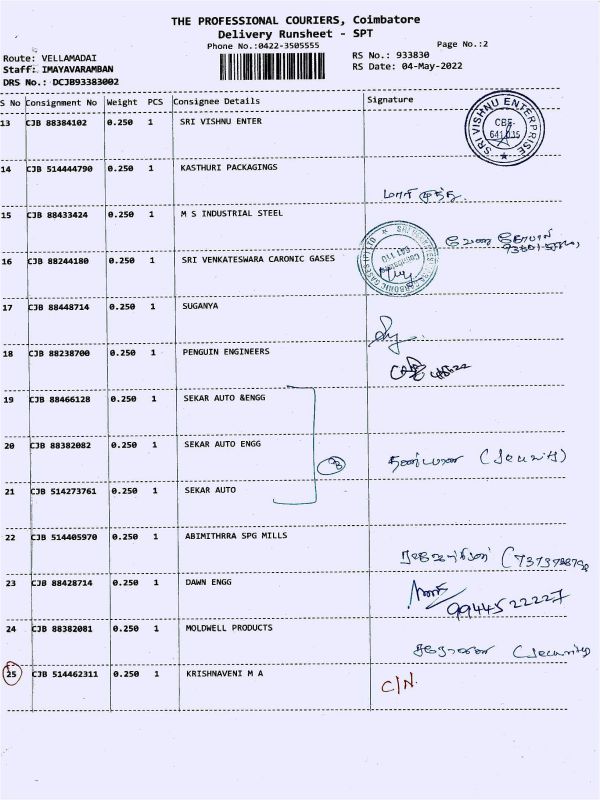 THE PROFESSIONAL COURIERS, Coimbatore
Delivery Runsheet - SPT
Phone No.:0422-3505555
Page No.:2
Route: VELLAMADAI
RS No.: 933830
Staff: IMAYAVARAMBAN
RS Date: 04-May-2022
DRS No.: DCJB93383002
S No Consignment No Weight PCS Consignee Details Signature
13 CJB 88384102 0.250 1 SRI VISHNU ENTER
SRI VISHNU ENTERPRISE
CBE-
14 CJB 514444790 0.250 1 KASTHURI PACKAGINGS
மாரி முத்து
15 CJB 88433424 0.250 1 M S INDUSTRIAL STEEL
16 CJB 88244180 0.250 1 SRI VENKATESWARA CARONIC GASES
641 110
17 CJB 88448714 0.250 1 SUGANYA
18 CJB 88238700 0.250 1 PENGUIN ENGINEERS
19 CJB 88466128 0.250 1 SEKAR AUTO &ENGG
20 CJB 88382082 0.250 1 SEKAR AUTO ENGG
21 CJB 514273761 0.250 1 SEKAR AUTO
22 CJB 514405970 0.250 1 ABIMITHRRA SPG MILLS
23 CJB 88428714 0.250 1 DAWN ENGG
99445 22227
24 CJB 88382081 0.250 1 MOLDWELL PRODUCTS
(Security
25 CJB 514462311 0.250 1 KRISHNAVENI M A
C/N.